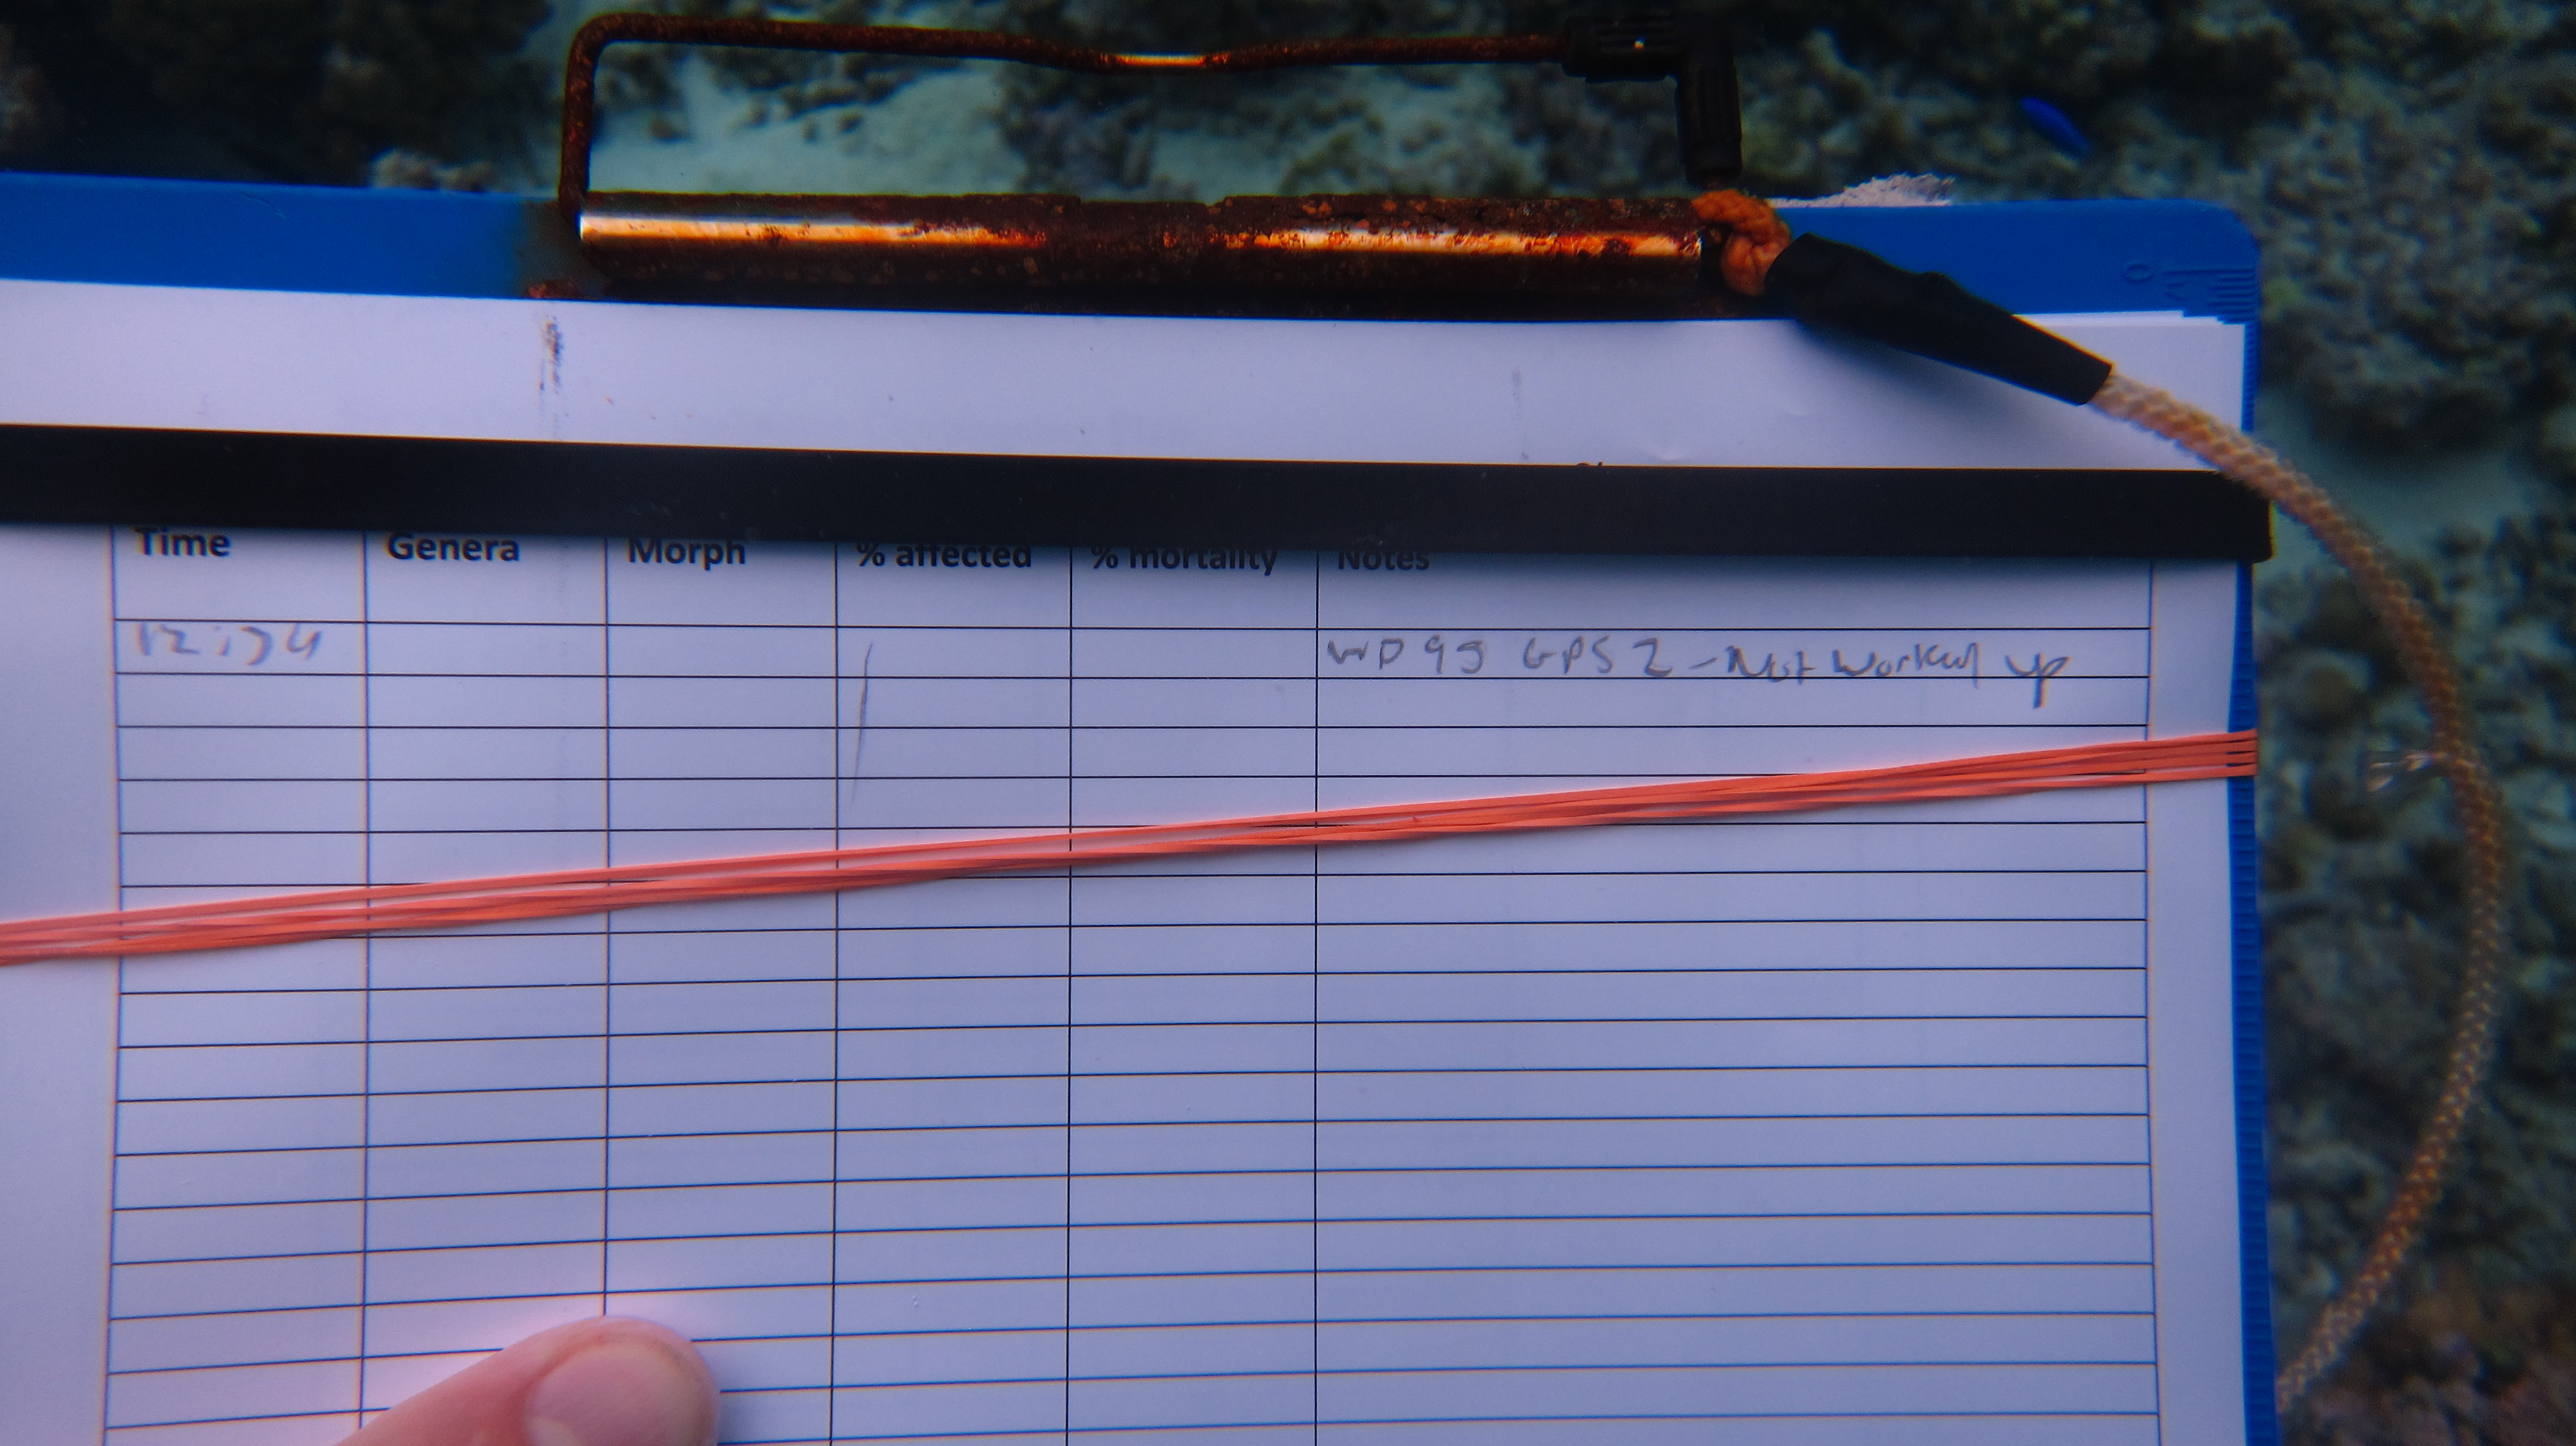 Time Genera Morph % affected % mortality Notes
12:34 WD 99 GPS 2 - Not Worked up